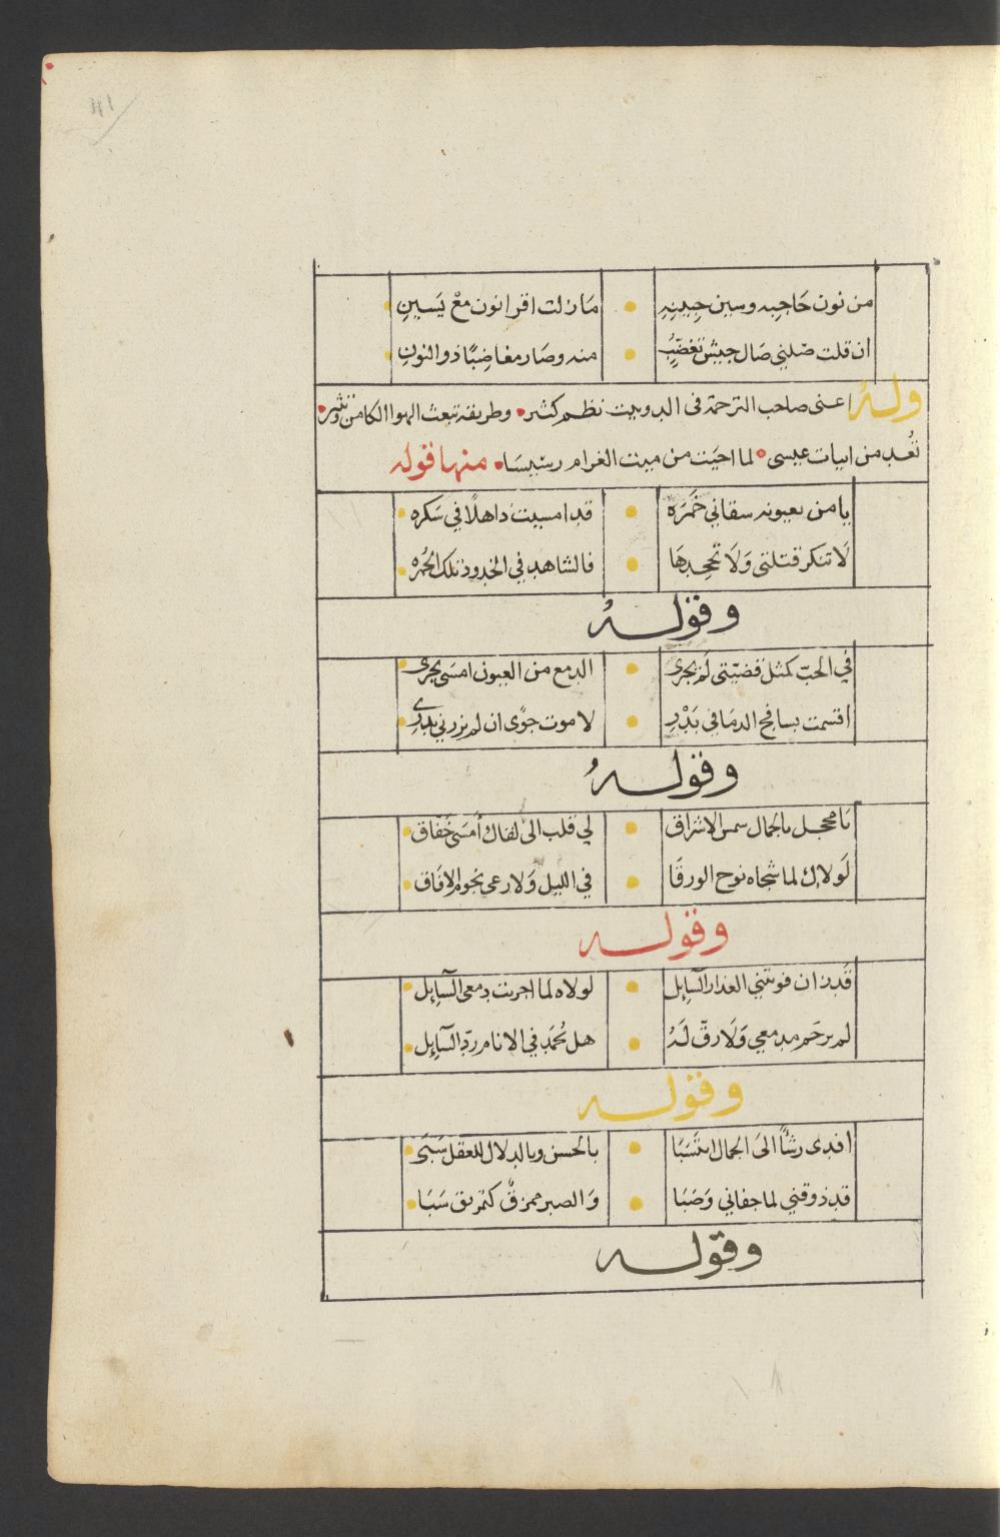 من نون حَاجبه وسين جبينِهِ • مَا زلت اقرا نون معْ يَسينِ •
ان قلت صِلني صَال جيش تغضّبُ • منه وصَار مغاضِبًا ذو النونِ •
وله اعنى صاحب الترجمة فى الدوبيت نظم كثير • وطريقه تبعث الهوا الكامن وتثير •
تُعد من ابيات عيسى • لما احيَت من ميت الغرام رسيسَا • منها قوله
يا من بعيونه سقاني خَمْرَه • قد امسيت داهلًا في سَكره •
لَا تنكر قتلتى وَلَا تجحدهَا • فالشاهد في الخدود تلك الحُمره •
وقوله
في الحبّ كمثل قضيّتى لَمْ يجرى • الدمع من العيون امسَى يجرى
اقسمت بسافح الدما فى بَدْرِ • لا موت جوًى ان لم يزرني بدرى •
وقوله
يَا مخجل بالجمال شمس الاشراق • لي قلب الى لقاك أمسَى خفاق •
لَولاك لما شجاه نوح الورقَا • في الليل وَلا رعى نجوم الافاق •
وقوله
قَد زان فويتني العذار السَّايِل • لولاه لما اجريت دمعى السَّايل •
لم يرحَم مدمعي وَلَا رقّ لَهُ • هل يُحمَد في الانام ردّ السَّايِل •
وقوله
افدى رشأ الىَ الجمال انتسَبَا • بالحسن وبالدلال للعقل سَبَى •
قد ذوقني لما جفاني وَصَبَا • وَالصبر ممزقٌ كتمزيق سَبَا •
وقوله